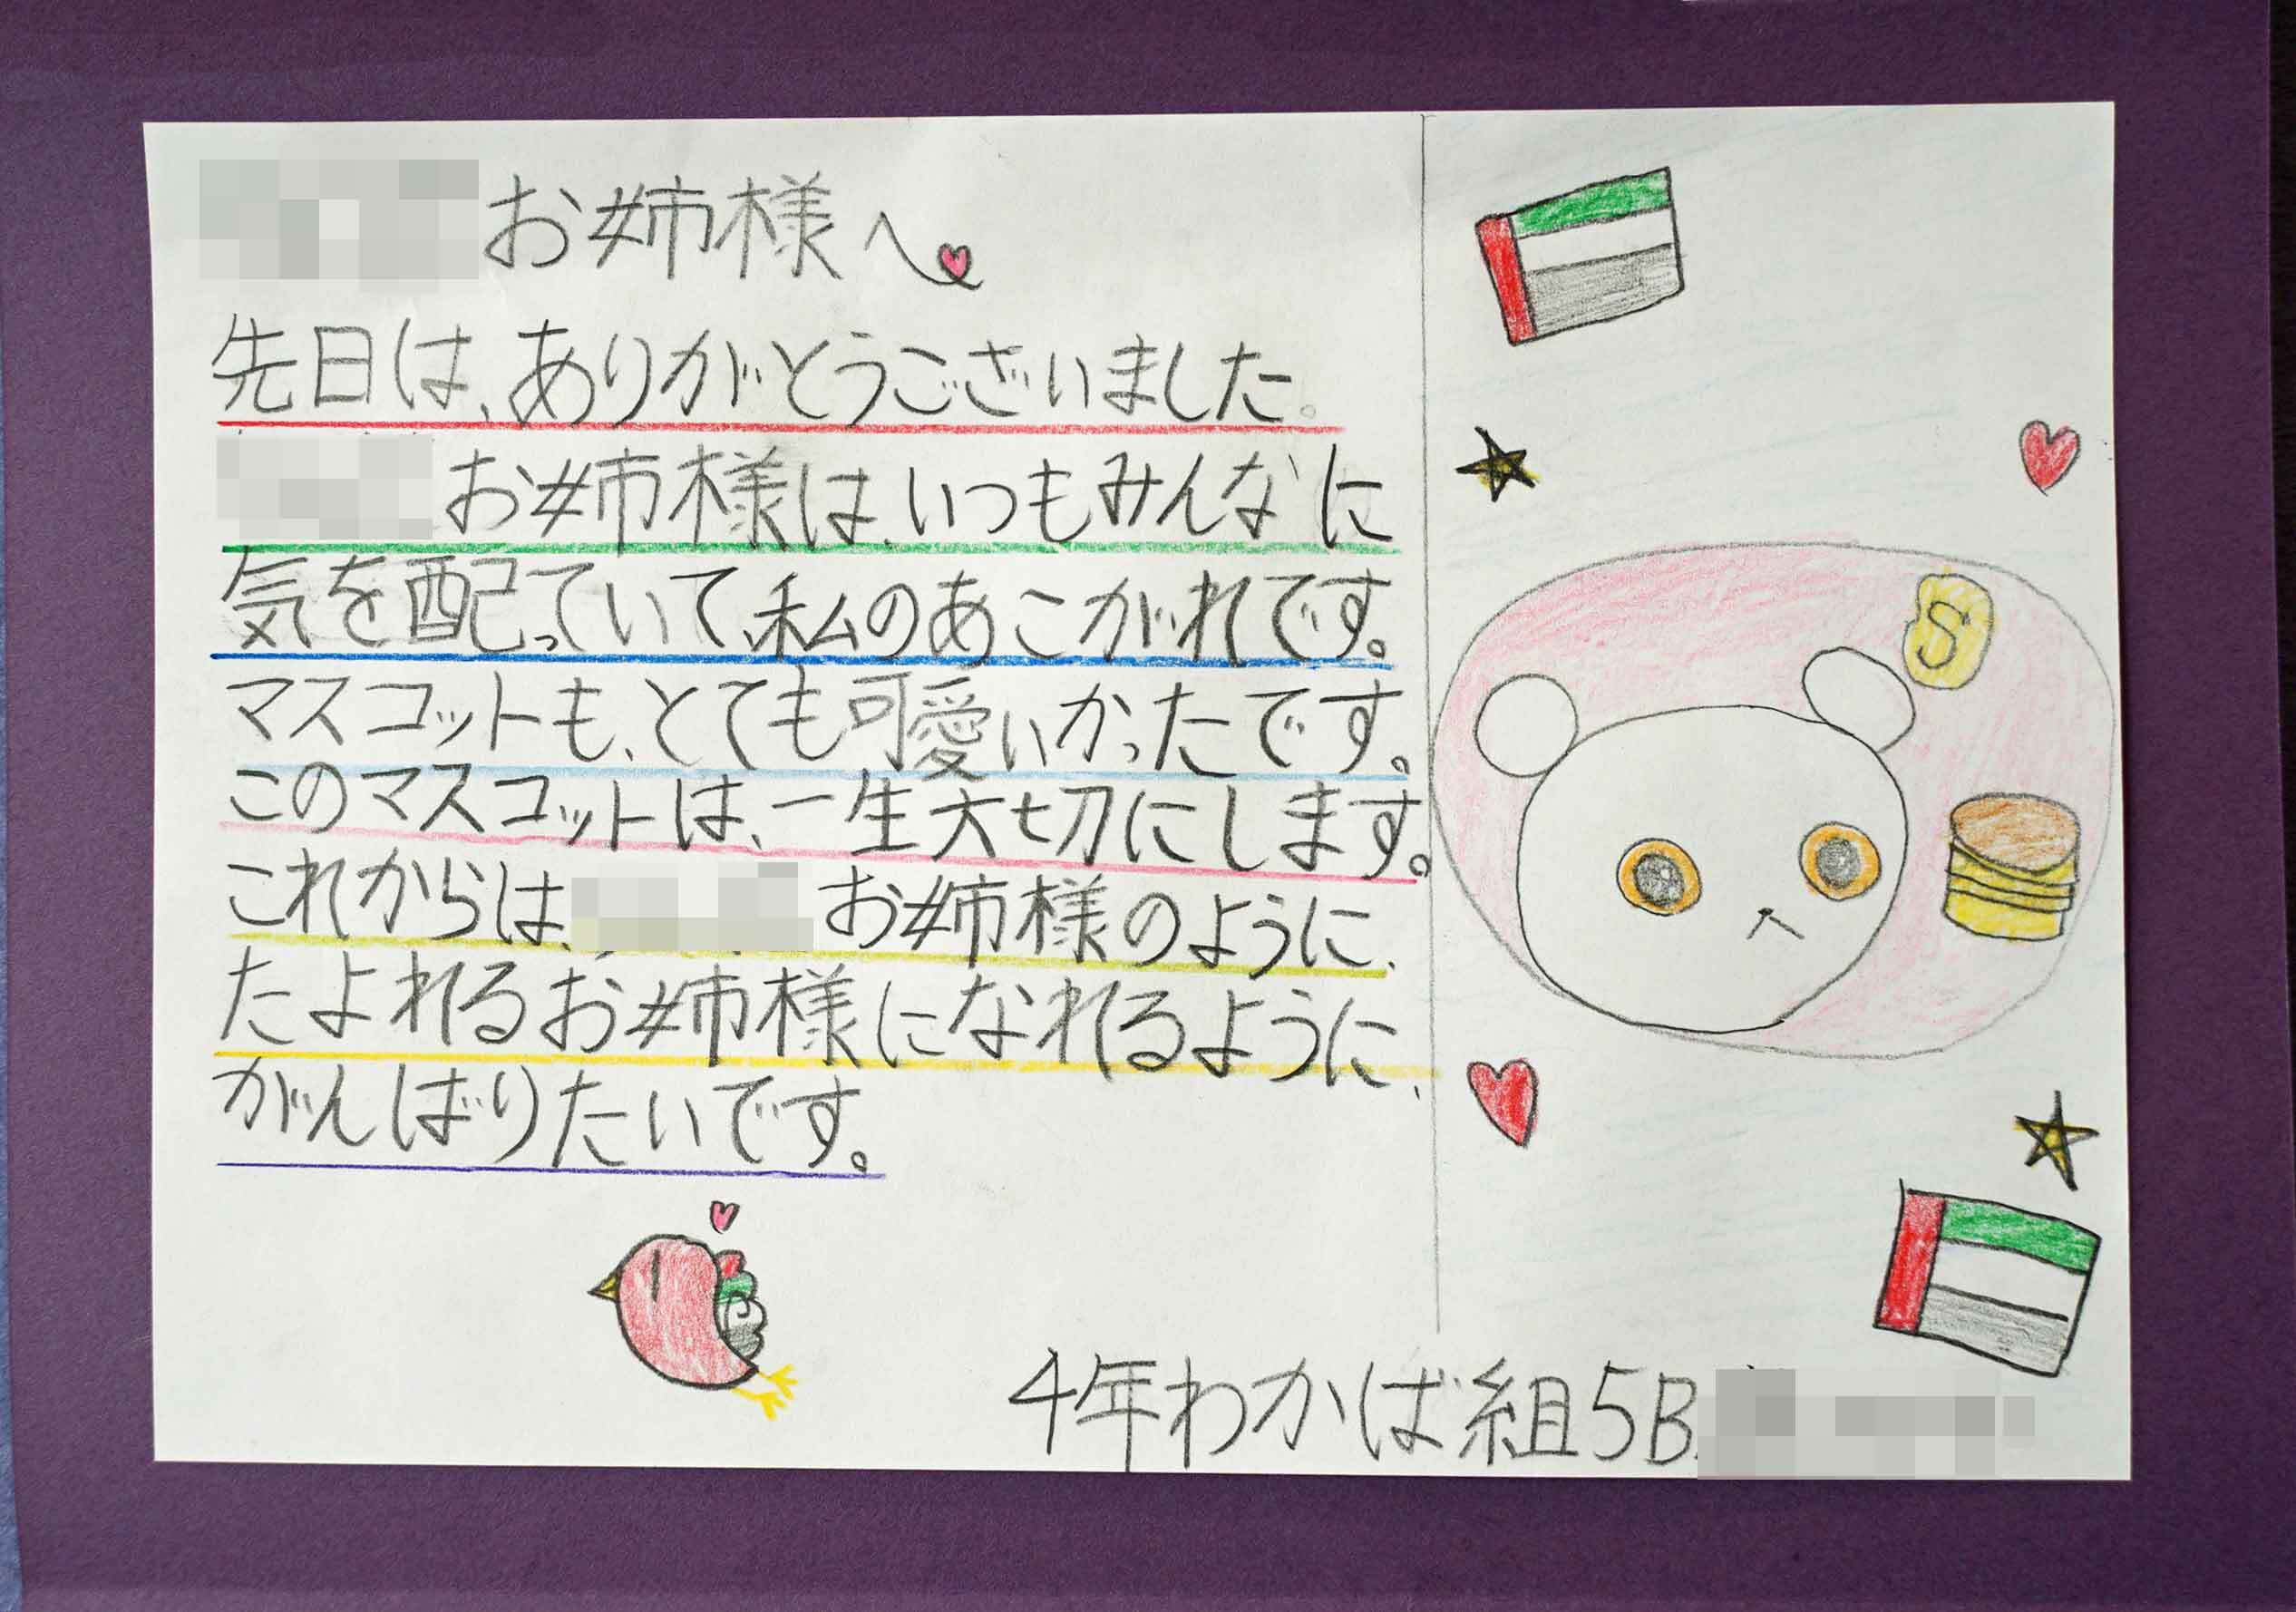 お姉様へ
先日は、ありがとうございました。
お姉様は、いつもみんなに
気を配っていて、私のあこがれです。
マスコットも、とても可愛いかったです。
このマスコットは、一生大切にします。
これからは、お姉様のように、
たよれるお姉様になれるように、
がんばりたいです。
S
4年わかば組5B